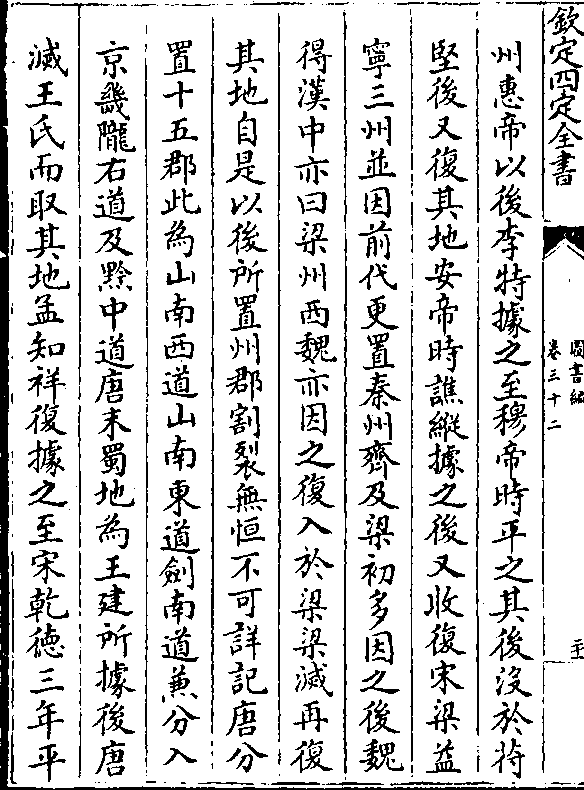 欽定四庫全書
圖書編
卷三十二
至
州惠帝以後李特據之至穆帝時平之其後没於苻
堅後又復其地安帝時譙縱據之後又收復宋梁益
寧三州並因前代更置秦州齊及梁初多因之後魏
得漢中亦曰梁州西魏亦因之復入於梁梁滅再復
其地自是以後所置州郡割裂無恒不可詳記唐分
置十五郡此為山南西道山南東道劍南道兼分入
京畿隴右道及黔中道唐末蜀地為王建所據後唐
滅王氏而取其地孟知祥復據之至宋乾徳三年平